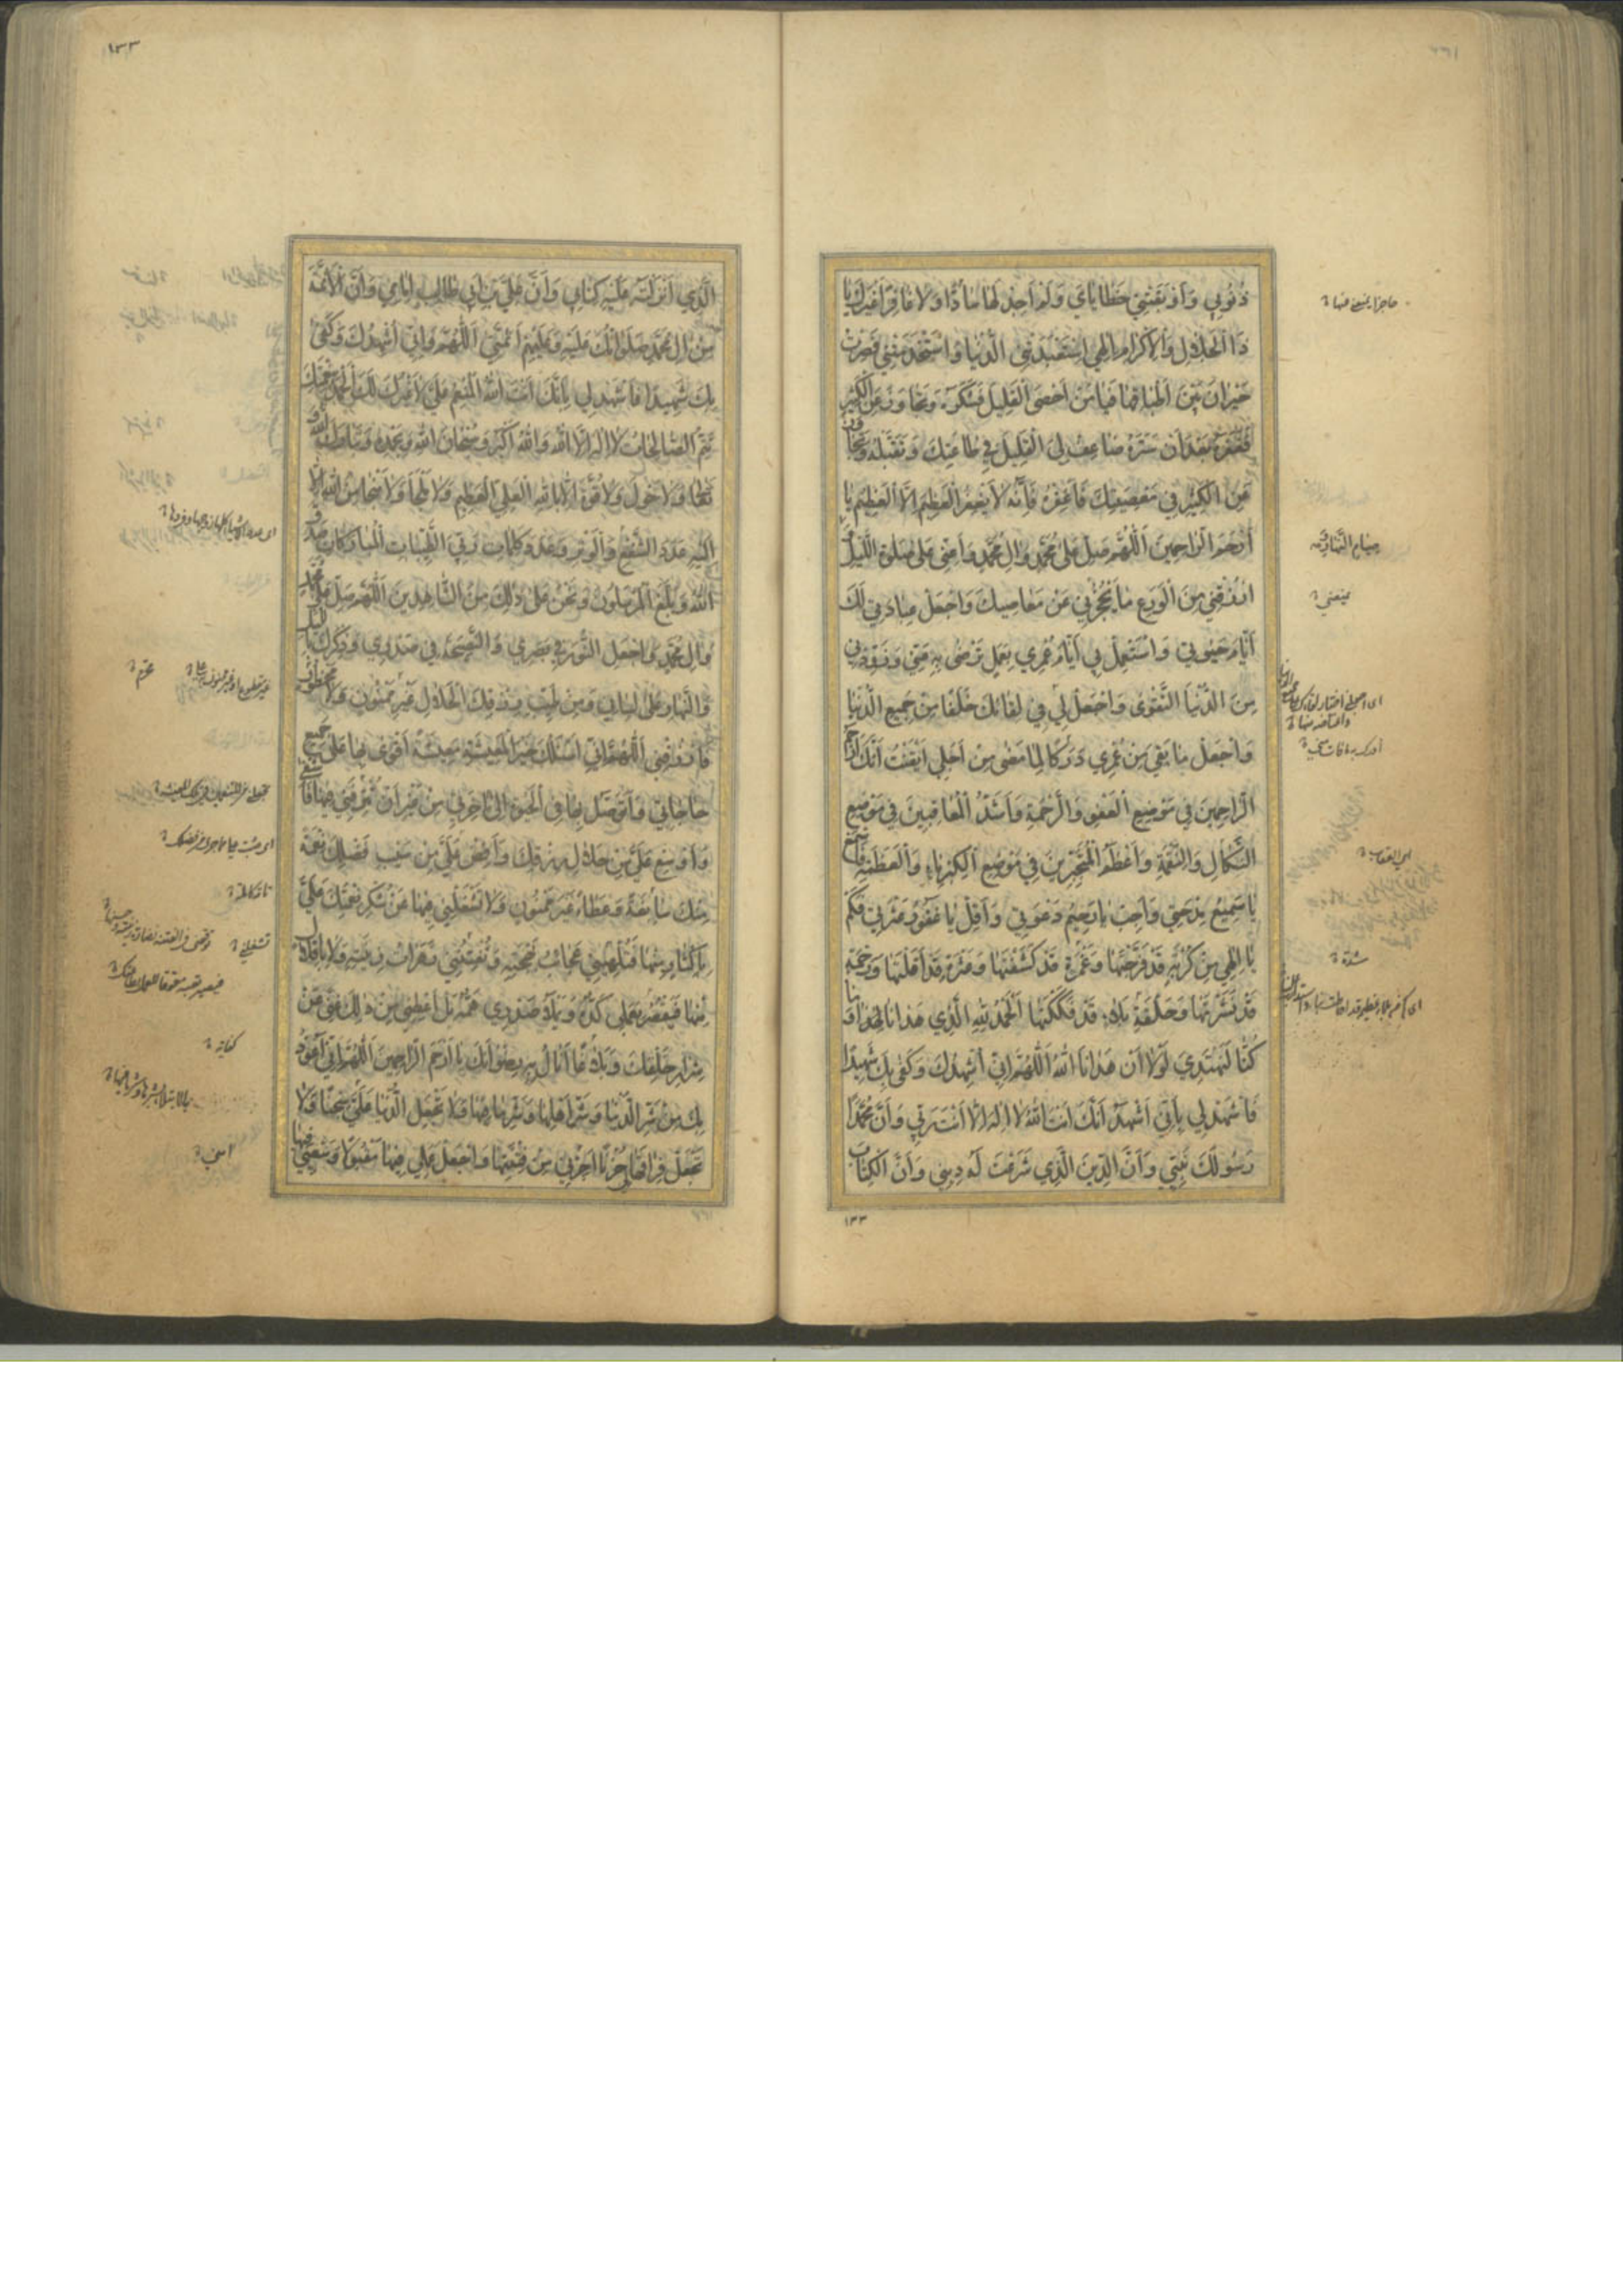 ذُنُوبِي وَأَوْبَقَتْنِي خَطَايَايَ وَلَمْ أَجِدْ لَهَا سَادًّا وَلَا غَافِرًا غَيْرَكَ يَا
ذَا الْجَلَالِ وَالْإِكْرَامِ إِلٰهِي اسْتَعْبَدَتْنِي الدُّنْيَا وَاسْتَخْدَمَتْنِي فَصِرْتُ
حَيْرَانَ بَيْنَ أَطْبَاقِهَا فَيَا مَنْ أَحْصَى الْقَلِيلَ فَشَكَرَهُ وَتَجَاوَزَ عَنِ الْكَثِيرِ
فَغَفَرَهُ بَعْدَ أَنْ سَتَرَهُ ضَاعِفْ لِيَ الْقَلِيلَ فِي طَاعَتِكَ وَتَقَبَّلْهُ وَتَجَاوَزْ
عَنِ الْكَثِيرِ فِي مَعْصِيَتِكَ فَاغْفِرْهُ فَإِنَّهُ لَا يَغْفِرُ الْعَظِيمَ إِلَّا الْعَظِيمُ يَا
أَرْحَمَ الرَّاحِمِينَ اَللّٰهُمَّ صَلِّ عَلَى مُحَمَّدٍ وَآلِ مُحَمَّدٍ وَأَعِنِّي عَلَى صَلٰوةِ اللَّيْلِ
ارْزُقْنِي مِنَ الْوَرَعِ مَا يَحْجُزُنِي عَنْ مَعَاصِيكَ وَاجْعَلْ عِبَادَتِي لَكَ
أَيَّامَ حَيٰوتِي وَاسْتَعْمِلْنِي أَيَّامَ عُمْرِي بِعَمَلٍ تَرْضَى بِهِ عَنِّي وَزَوِّدْنِي
مِنَ الدُّنْيَا التَّقْوَى وَاجْعَلْ لِي فِي لِقَائِكَ خَلَفًا مِنْ جَمِيعِ الدُّنْيَا
وَاجْعَلْ مَا بَقِيَ مِنْ عُمْرِي دَرَكًا لِمَا مَضَى مِنْ أَجَلِي أَيْقَنْتُ أَنَّكَ أَرْحَمُ
الرَّاحِمِينَ فِي مَوْضِعِ الْعَفْوِ وَالرَّحْمَةِ وَأَشَدُّ الْمُعَاقِبِينَ فِي مَوْضِعِ
النَّكَالِ وَالنَّقِمَةِ وَأَعْظَمُ الْمُتَجَبِّرِينَ فِي مَوْضِعِ الْكِبْرِيَاءِ وَالْعَظَمَةِ فَاسْمَعْ
يَا سَمِيعُ مِدْحَتِي وَأَجِبْ يَا رَحِيمُ دَعْوَتِي وَأَقِلْ يَا غَفُورُ عَثْرَتِي فَكَمْ
يَا إِلٰهِي مِنْ كُرْبَةٍ قَدْ فَرَّجْتَهَا وَغَمْرَةٍ قَدْ كَشَفْتَهَا وَعَثْرَةٍ قَدْ أَقَلْتَهَا وَرَحْمَةٍ
قَدْ نَشَرْتَهَا وَحَلْقَةِ بَلَاءٍ قَدْ فَكَكْتَهَا اَلْحَمْدُ لِلّٰهِ الَّذِي هَدَانَا لِهٰذَا وَمَا
كُنَّا لِنَهْتَدِيَ لَوْلَا أَنْ هَدَانَا اللّٰهُ اَللّٰهُمَّ إِنِّي أُشْهِدُكَ وَكَفَى بِكَ شَهِيدًا
فَاشْهَدْ لِي بِأَنِّي أَشْهَدُ أَنَّكَ أَنْتَ اللّٰهُ لَا إِلٰهَ إِلَّا أَنْتَ رَبِّي وَأَنَّ مُحَمَّدًا
رَسُولَكَ نَبِيِّي وَأَنَّ الدِّينَ الَّذِي شَرَعْتَ لَهُ دِينِي وَأَنَّ الْكِتَابَ
حاجزا يمنع عنها
صيام النهار
يمنعني
اى العقاب
شدة
١٣٣
١٣٣
الَّذِي أَنْزَلْتَ عَلَيْهِ كِتَابِي وَأَنَّ عَلِيَّ بْنَ أَبِي طَالِبٍ إِمَامِي وَأَنَّ الْأَئِمَّةَ
مِنْ آلِ مُحَمَّدٍ صَلَوَاتُكَ عَلَيْهِ وَعَلَيْهِمْ أَئِمَّتِي اَللّٰهُمَّ إِنِّي أُشْهِدُكَ وَكَفَى
بِكَ شَهِيدًا فَاشْهَدْ لِي بِأَنَّكَ أَنْتَ اللّٰهُ الْمُنْعِمُ عَلَيَّ لَا غَيْرُكَ لَكَ الْحَمْدُ بِنِعْمَتِكَ
تَتِمُّ الصَّالِحَاتُ لَا إِلٰهَ إِلَّا اللّٰهُ وَاللّٰهُ أَكْبَرُ وَسُبْحَانَ اللّٰهِ وَبِحَمْدِهِ وَتَبَارَكَ اللّٰهُ
تَعَالَى وَلَا حَوْلَ وَلَا قُوَّةَ إِلَّا بِاللّٰهِ الْعَلِيِّ الْعَظِيمِ وَلَا مَلْجَأَ وَلَا مَنْجَا مِنَ اللّٰهِ إِلَّا
إِلَيْهِ عَدَدَ الشَّفْعِ وَالْوَتْرِ وَعَدَدَ كَلِمَاتِ رَبِّيَ الطَّيِّبَاتِ الْمُبَارَكَاتِ صَدَقَ
اللّٰهُ وَبَلَّغَ الْمُرْسَلُونَ وَنَحْنُ عَلَى ذٰلِكَ مِنَ الشَّاهِدِينَ اَللّٰهُمَّ صَلِّ عَلَى مُحَمَّدٍ
وَآلِ مُحَمَّدٍ وَاجْعَلِ النُّورَ فِي بَصَرِي وَالنَّصِيحَةَ فِي صَدْرِي وَذِكْرَكَ بِاللَّيْلِ
وَالنَّهَارِ عَلَى لِسَانِي وَمِنْ طَيِّبِ رِزْقِكَ الْحَلَالِ غَيْرَ مَمْنُونٍ وَلَا مَحْظُورٍ
فَارْزُقْنِي اَللّٰهُمَّ إِنِّي أَسْئَلُكَ خَيْرَ الْمَعِيشَةِ مَعِيشَةً أَقْوَى بِهَا عَلَى جَمِيعِ
حَاجَاتِي وَأَتَوَصَّلُ بِهَا فِي الْحَيٰوةِ إِلَى آخِرَتِي مِنْ غَيْرِ أَنْ تُتْرِفَنِي فِيهَا فَأَشْقَى
وَأَوْسِعْ عَلَيَّ مِنْ حَلَالِ رِزْقِكَ وَأَفِضْ عَلَيَّ مِنْ سَيْبِ فَضْلِكَ نِعْمَةً
مِنْكَ سَابِغَةً وَعَطَاءً غَيْرَ مَمْنُونٍ وَلَا تَشْغَلْنِي فِيهَا عَنْ شُكْرِ نِعْمَتِكَ عَلَيَّ
بِإِكْثَارٍ مِنْهَا فَتُلْهِيَنِي عَجَائِبُ بَهْجَتِهِ وَتَفْتِنَنِي زَهَرَاتُ زِينَتِهِ وَلَا بِإِقْلَالٍ
مِنْهَا فَيَقْصُرَ بِعَمَلِي كَدُّهُ وَيَمْلَأَ صَدْرِي هَمُّهُ بَلْ أَعْطِنِي مِنْ ذٰلِكَ غِنًى عَنْ
شِرَارِ خَلْقِكَ وَبَلَاغًا أَنَالُ بِهِ رِضْوَانَكَ يَا أَرْحَمَ الرَّاحِمِينَ اَللّٰهُمَّ إِنِّي أَعُوذُ
بِكَ مِنْ شَرِّ الدُّنْيَا وَشَرِّ أَهْلِهَا وَشَرِّ مَا فِيهَا وَلَا تَجْعَلِ الدُّنْيَا عَلَيَّ سِجْنًا وَلَا
تَجْعَلْ فِرَاقَهَا لِي حُزْنًا أَجِرْنِي مِنْ فِتْنَتِهَا وَاجْعَلْ عَمَلِي فِيهَا مَقْبُولًا وَسَعْيِي فِيهَا
محرم
كفاية